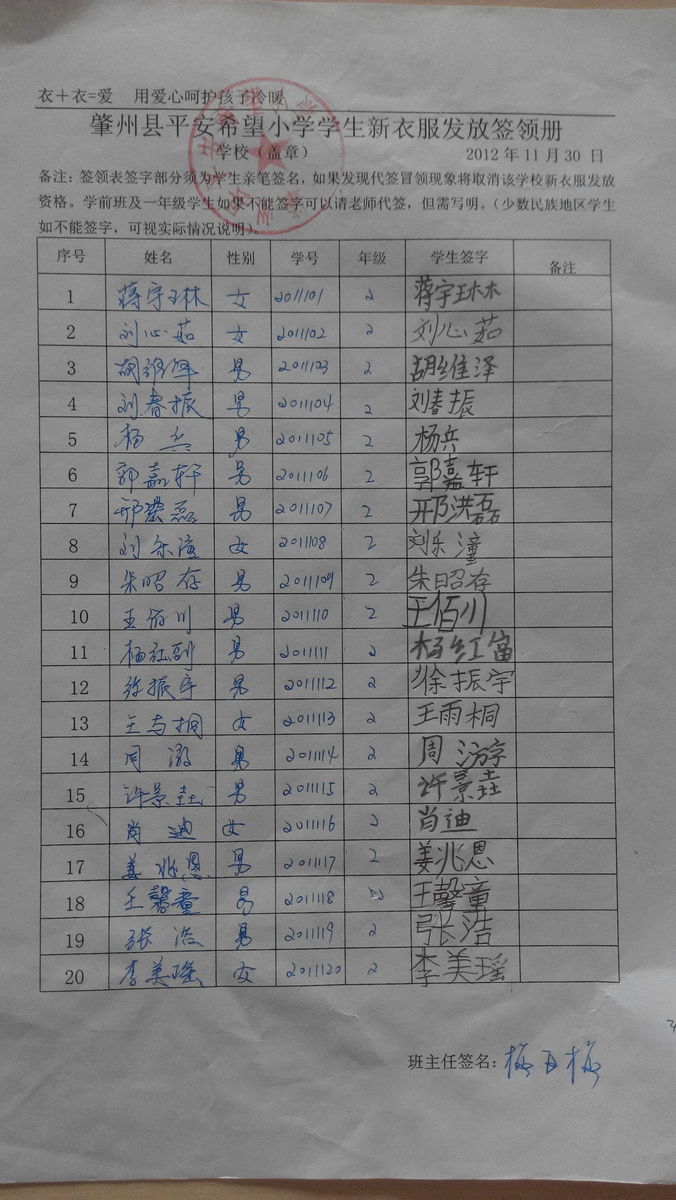 衣＋衣=爱 用爱心呵护孩子冷暖
肇州县平安希望小学学生新衣服发放签领册
学校（盖章） 2012年11月30日
备注：签领表签字部分须为学生亲笔签名，如果发现代签冒领现象将取消该学校新衣服发放
资格。学前班及一年级学生如果不能签字可以请老师代签，但需写明。（少数民族地区学生
如不能签字，可视实际情况说明）。
序号 姓名 性别 学号 年级 学生签字 备注
1 蒋宇琳 女 2011101 2 蒋宇琳
2 刘心茹 女 2011102 2 刘心茹
3 胡维泽 男 2011103 2 胡维泽
4 刘春振 男 2011104 2 刘春振
5 杨兵 男 2011105 2 杨兵
6 郭嘉轩 男 2011106 2 郭嘉轩
7 邢洪磊 男 2011107 2 邢洪磊
8 刘乐潼 女 2011108 2 刘乐潼
9 朱昭存 男 2011109 2 朱昭存
10 王佰川 男 2011110 2 王佰川
11 杨红富 男 2011111 2 杨红富
12 徐振宇 男 2011112 2 徐振宇
13 王雨桐 女 2011113 2 王雨桐
14 周 男 2011114 2 周
15 许景垚 男 2011115 2 许景垚
16 肖迪 女 2011116 2 肖迪
17 姜兆恩 男 2011117 2 姜兆恩
18 王馨童 男 2011118 2 王馨童
19 张浩 男 2011119 2 张浩
20 李美瑶 女 2011120 2 李美瑶
班主任签名：